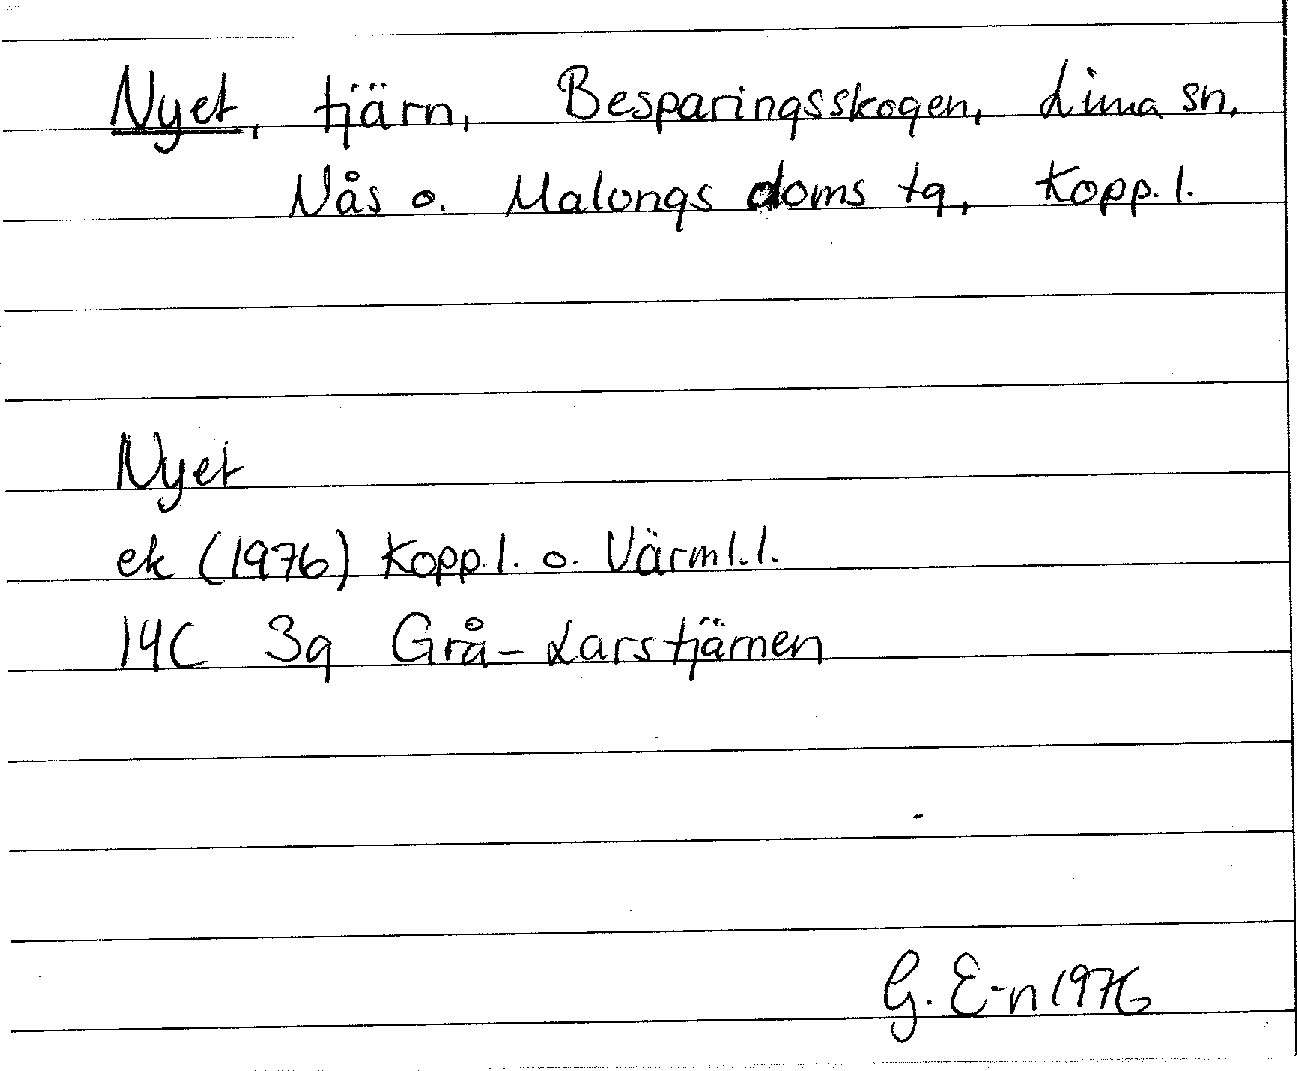 Nyet, tjärn, Besparingsskogen, Lima sn.
Nås o. Malungs doms tg, Kopp. l.
Nyet
ek (1976) Kopp. l. o. Värml. l.
14C 3g Grå-Larstjärnen
G. E-n 1976